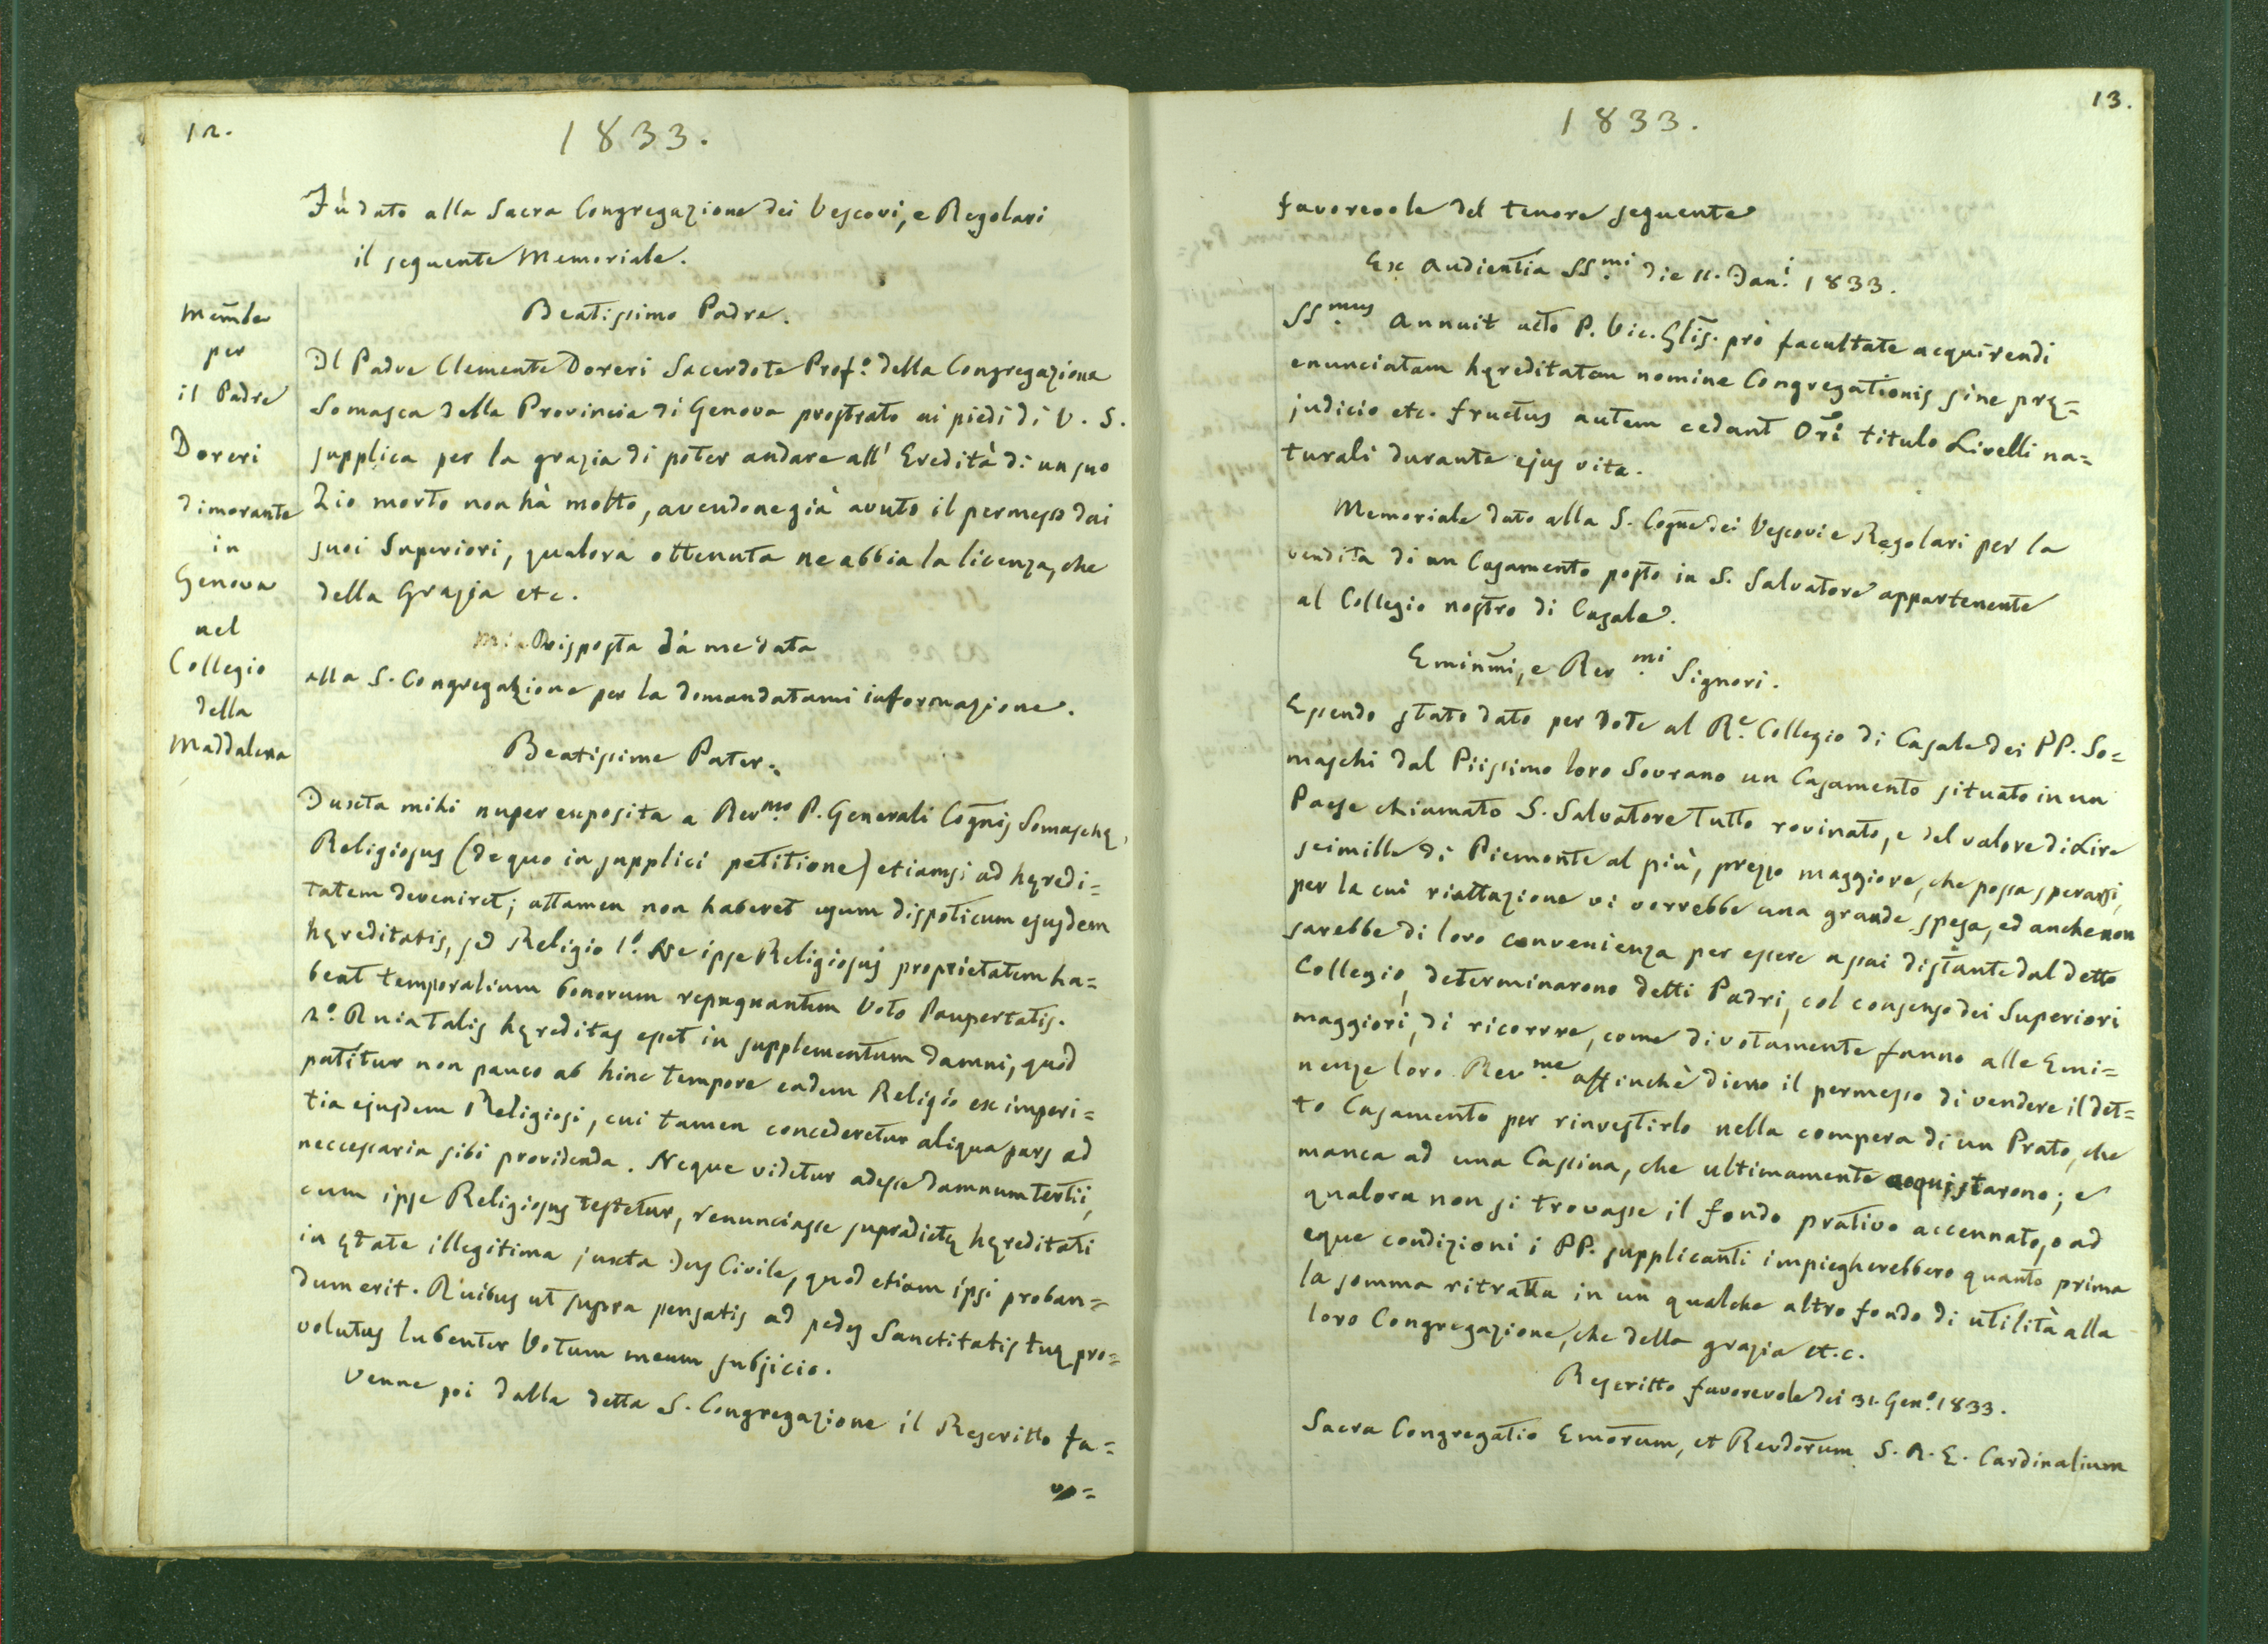 12.
1833.
Fù dato alla Sacra Congregazione dei Vescovi, e Regolari
il seguente Memoriale.
Beatissimo Padre.
Mem̃le
per
il Padre
Doreri
dimorante
in
Genova
nel
Collegio
della
Maddalena
Il Padre Clemente Doreri Sacerdote Prof.o della Congregazione
Somasca della Provincia di Genova prostrato ai piedi di V. S.
supplica per la grazia di poter andare all' Eredità di un suo
Zio morto non hà molto, avendone già avuto il permesso dai
suoi Superiori, qualora ottenuta ne abbia la licenza, che
della Grazia etc.
Risposta dà me data
alla S. Congregazione per la domandatami informazione.
Beatissime Pater.
Juxta mihi nuper exposita a Rev.mo P. Generali Cog̃nis Somaschę,
Religiosus (de quo in supplici petitione) etiamsi ad hęredi=
tatem deveniret; attamen non haberet usum dispoticum ejusdem
hęreditatis, sed Religio 1.o Ne ipse Religiosus proprietatem ha=
beat temporalium bonorum repugnantem Voto Paupertatis.
2.o Quia talis hęreditas esset in supplementum damni, quod
patitur non pauco ab hinc tempore eadem Religio ex imperi=
tia ejusdem Religiosi, cui tamen concederetur aliqua pars ad
neccessaria sibi providenda. Neque videtur adesse damnum tertii,
cum ipse Religiosus testetur, renunciasse supradictę hęreditati
in ętate illegitima juxta Jus Civile, quod etiam ipsi proban=
dum erit. Quibus ut supra pensatis ad pedes Sanctitatis tuę pro=
volutus lubenter Votum meum subjicio.
Venne poi dalla detta S. Congregazione il Rescritto fa=
vo=
13.
1833.
favorevole del tenore seguente
Ex Audientia SS.mi die 11. Jan.i 1833.
SS.mus annuit arcto P. Vic. Glis̃. pro facultate acquirendi
enunciatam hęreditatem nomine Congregationis sine prę=
judicio etc. fructus autem cedant Ori titulo Livelli na=
turali durante ejus vita.
Memoriale dato alla S. Cog̃ne dei Vescovi e Regolari per la
vendita di un Casamento posto in S. Salvatore appartenente
al Collegio nostro di Casale.
Emiñmi, e Rev.mi Signori.
Essendo stato dato per dote al R.e Collegio di Casale dei PP. So=
maschi dal Piissimo loro Sovrano un Casamento situato in un
Paese chiamato S. Salvatore tutto rovinato, e del valore di Lire
seimille di Piemonte al più, prezzo maggiore, che possa sperarsi,
per la cui riattazione vi vorrebbe una grande spesa, ed anche non
sarebbe di loro convenienza per essere assai distante dal detto
Collegio, determinarono detti Padri, col consenso dei Superiori
maggiori, di ricorrre, come divotamente fanno alle Emi=
nenze loro Rev.me affinchè dieno il permesso di vendere il det=
to Casamento per rinvestirlo nella compera di un Prato, che
manca ad una Cascina, che ultimamente acquistarono; e
qualora non si trovasse il fondo prativo accennato, o ad
eque condizioni i PP. supplicanti impiegherebbero quanto prima
la somma ritratta in un qualche altro fondo di utilità alla
loro Congregazione, che della grazia et.c.
Rescritto favorevole dei 31. Gen.o 1833.
Sacra Congregatio Em̃orum, et Rev̄dorum S. R. E. Cardinalium